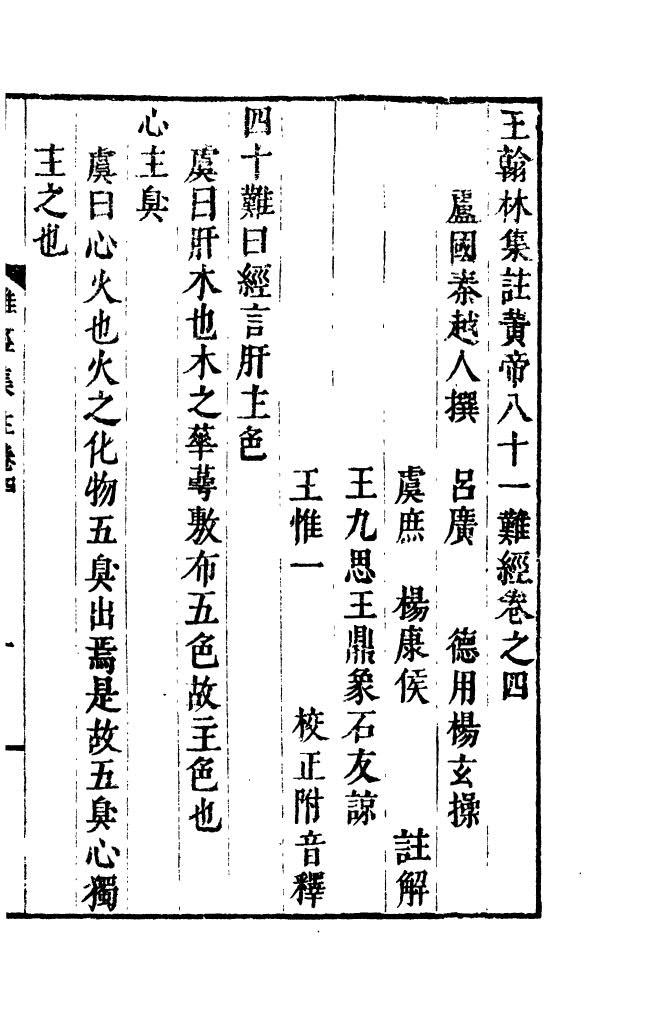 王翰林集註黃帝八十一難經卷之四
盧國秦越人撰 呂廣 德用楊玄操
虞庶 楊康侯 註解
王九思王鼎象石友諒
王惟一 校正附音釋
四十難曰經言肝主色
虞曰肝木也木之華蕚敷布五色故主色也
心主臭
虞曰心火也火之化物五臭出焉是故五臭心獨
主之也
難經集註卷四 一